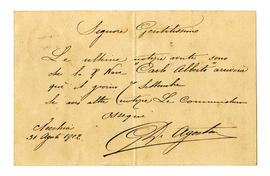 Signore Gentilissimo
Le ultime notizie avute sono
che la R. Nave "Carlo Alberto" arriverà
qui il giorno 7 Settembre
Se avrò altre notizie Le comunicherò
Ossequi
31 Agosto 1902
Agostin